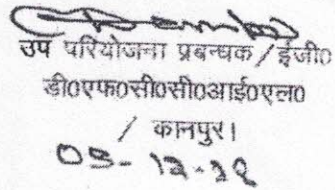 उप परियोजना प्रबन्धक / ईजी०
डी०एफ०सी०सी०आई०एल०
/ कानपुर।